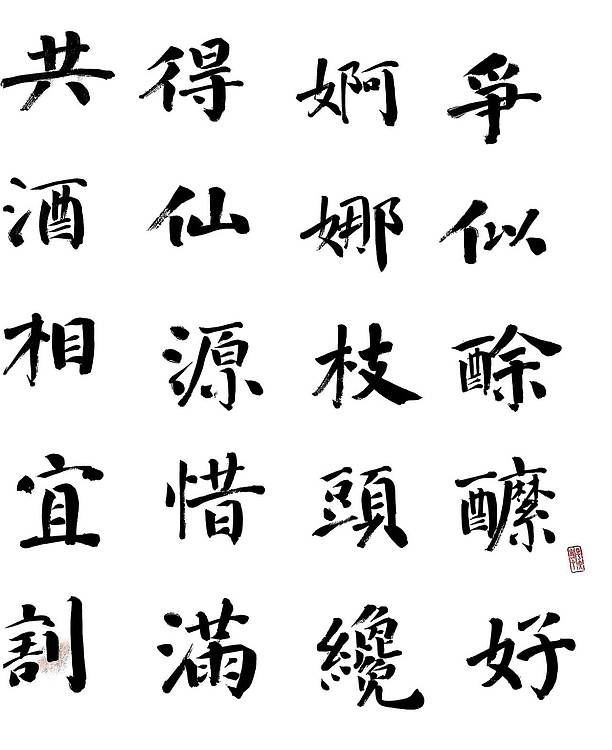 爭似酴醾好
婀娜枝頭纔
得仙源惜滿
共酒相宜割